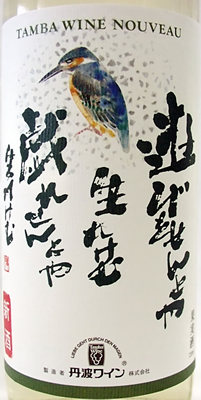 TAMBA WINE NOUVEAU
遊びをせんとや
生れけむ
戯れせんとや
生れけむ
新酒
果実酒
LIEBE GEHT DURCH DEN MAGEN
製造者 丹波ワイン 株式会社